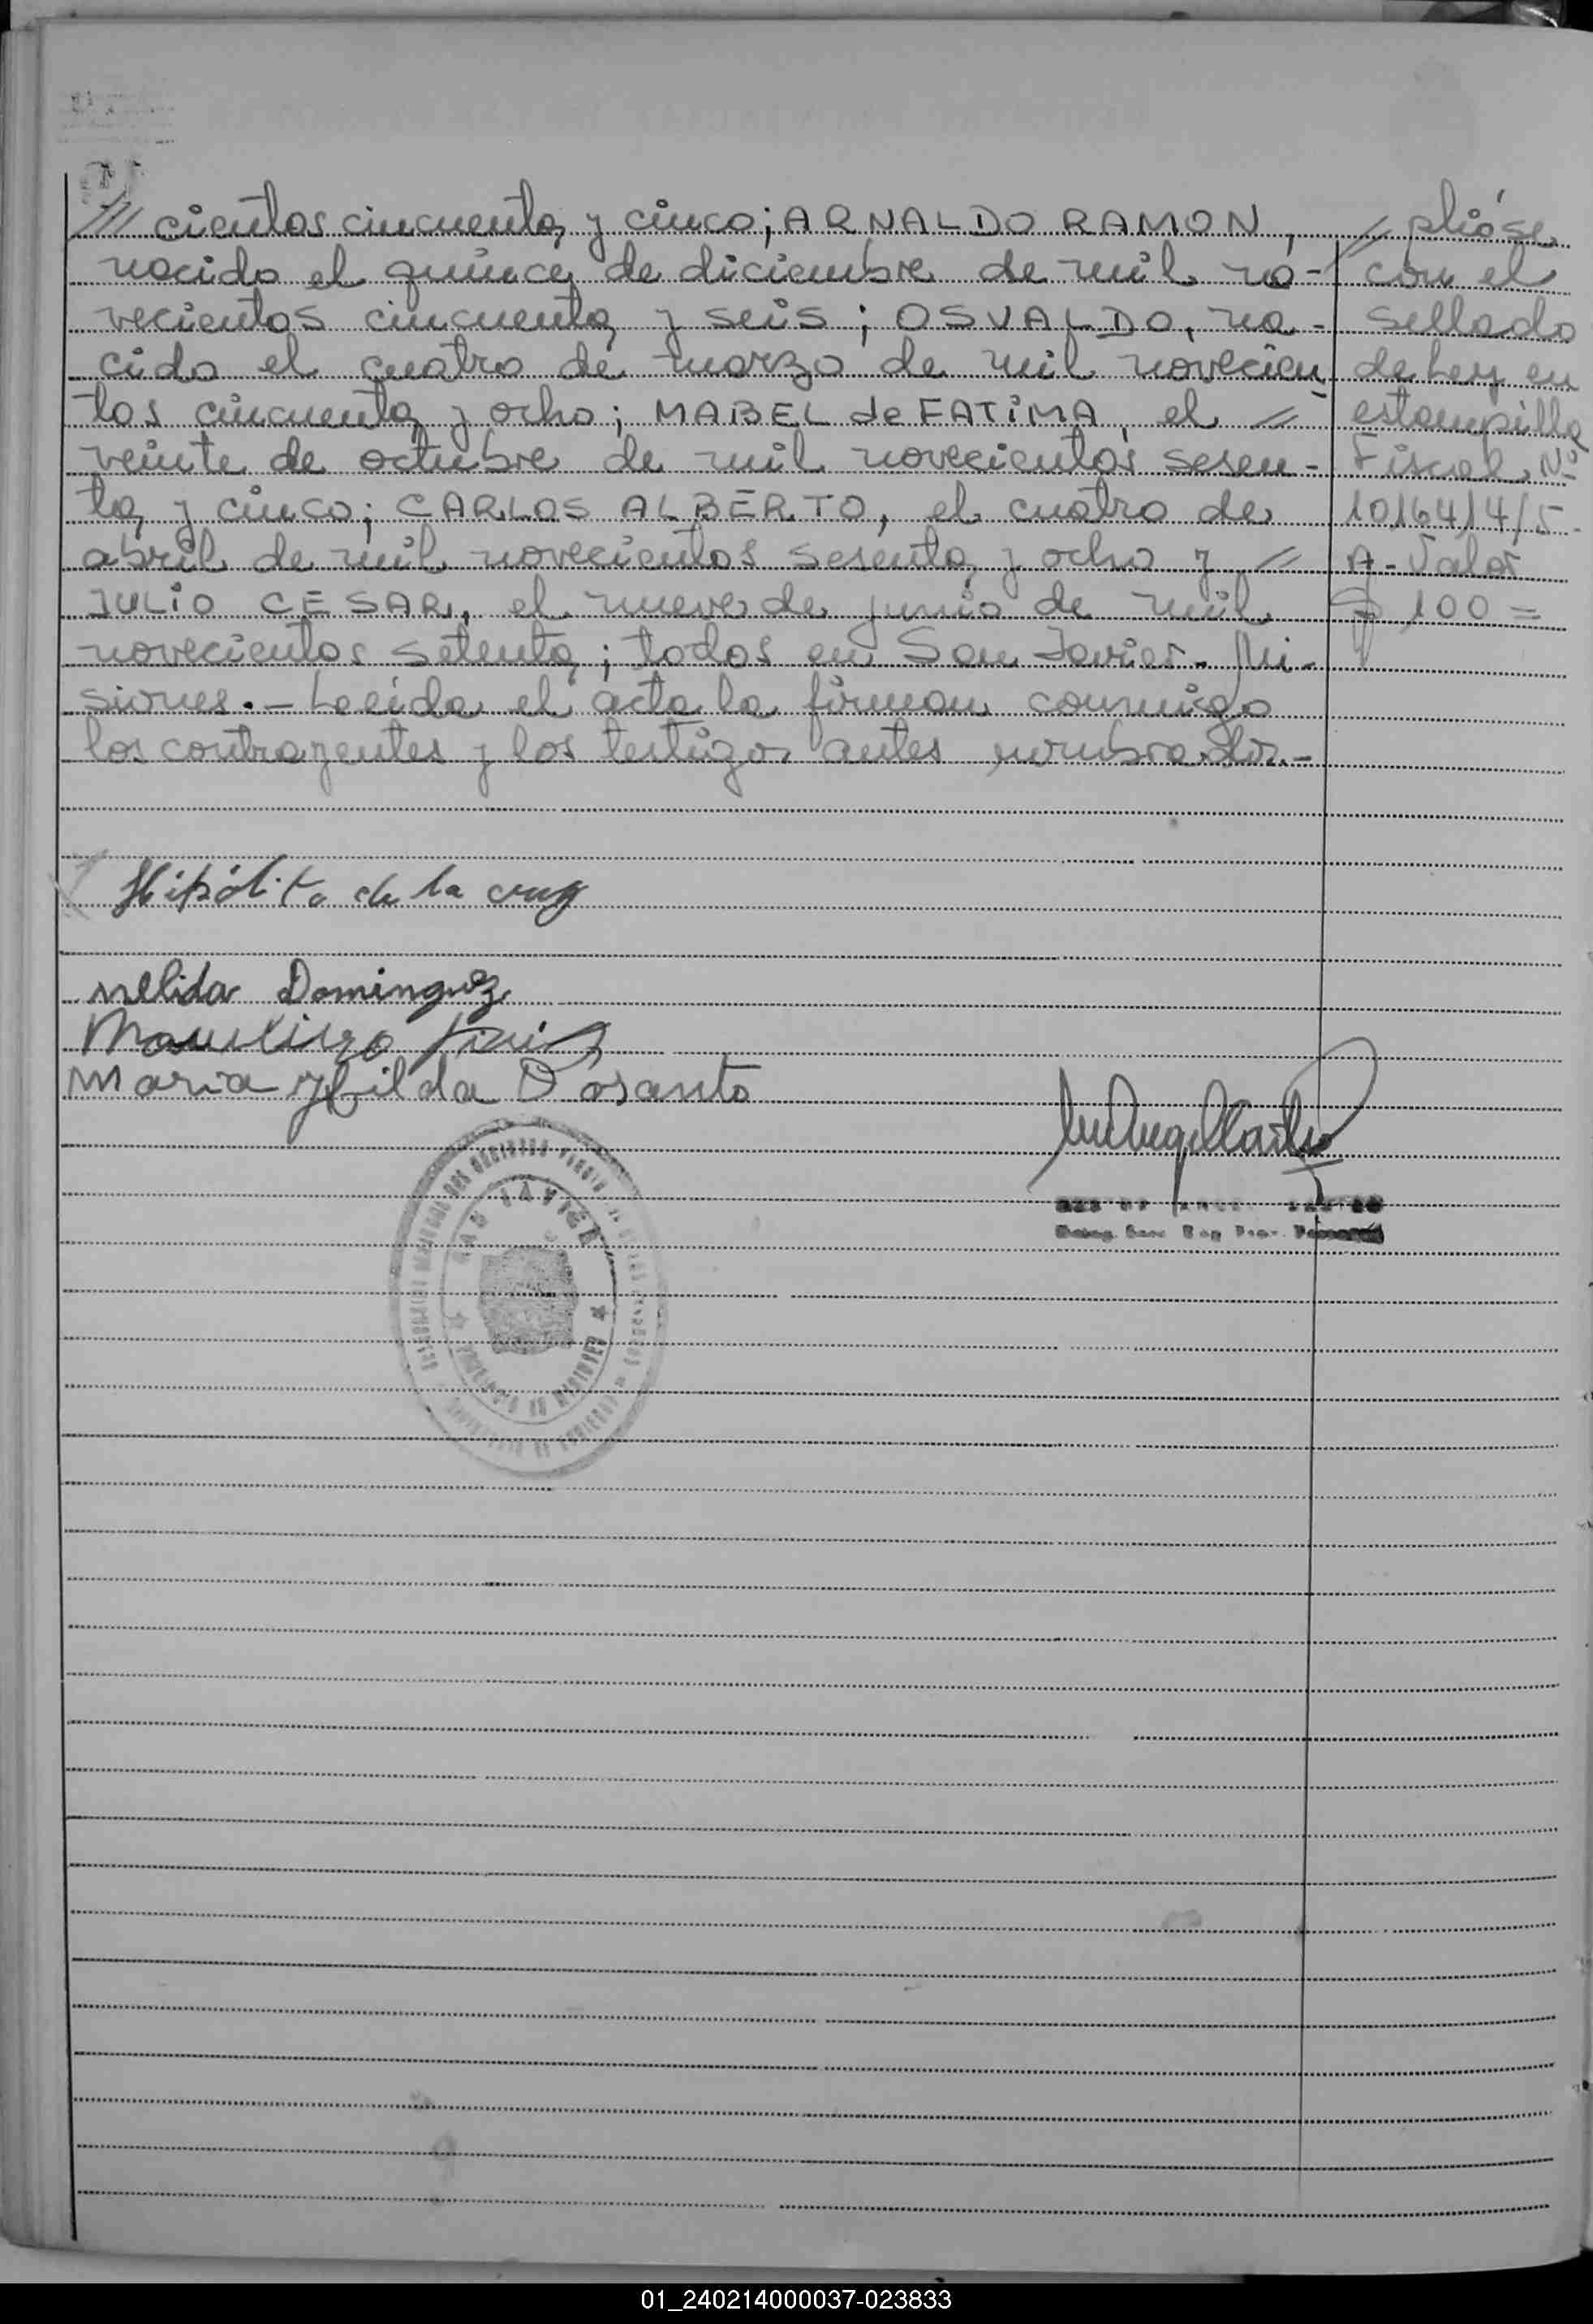 /// cientos cincuenta y cinco; ARNALDO RAMON,
nacido el quince de diciembre de mil no-
vecientos cincuenta y seis; OSVALDO, na-
cido el cuatro de marzo de mil novecien
tos cincuenta y ocho; MABEL de FATIMA, el =
veinte de octubre de mil novecientos sesen-
ta y cinco; CARLOS ALBERTO, el cuatro de
abril de mil novecientos sesenta y ocho y =
JULIO CESAR, el nueve de junio de mil
novecientos setenta; todos en San Javier. Mi-
siones.- Leída el acta la firman conmigo
los contrayentes y los testigos antes nombrados.-
// plióse
con el
sellado
de Ley en
estampilla
Fiscal Nº
1016414/5-
A- Valor
$ 100 =
Hipólito de la cruz
Nelida Dominguez
Maria Hilda D osanto
SAN JAVIER
PROVINCIA DE MISIONES
01_240214000037-023833